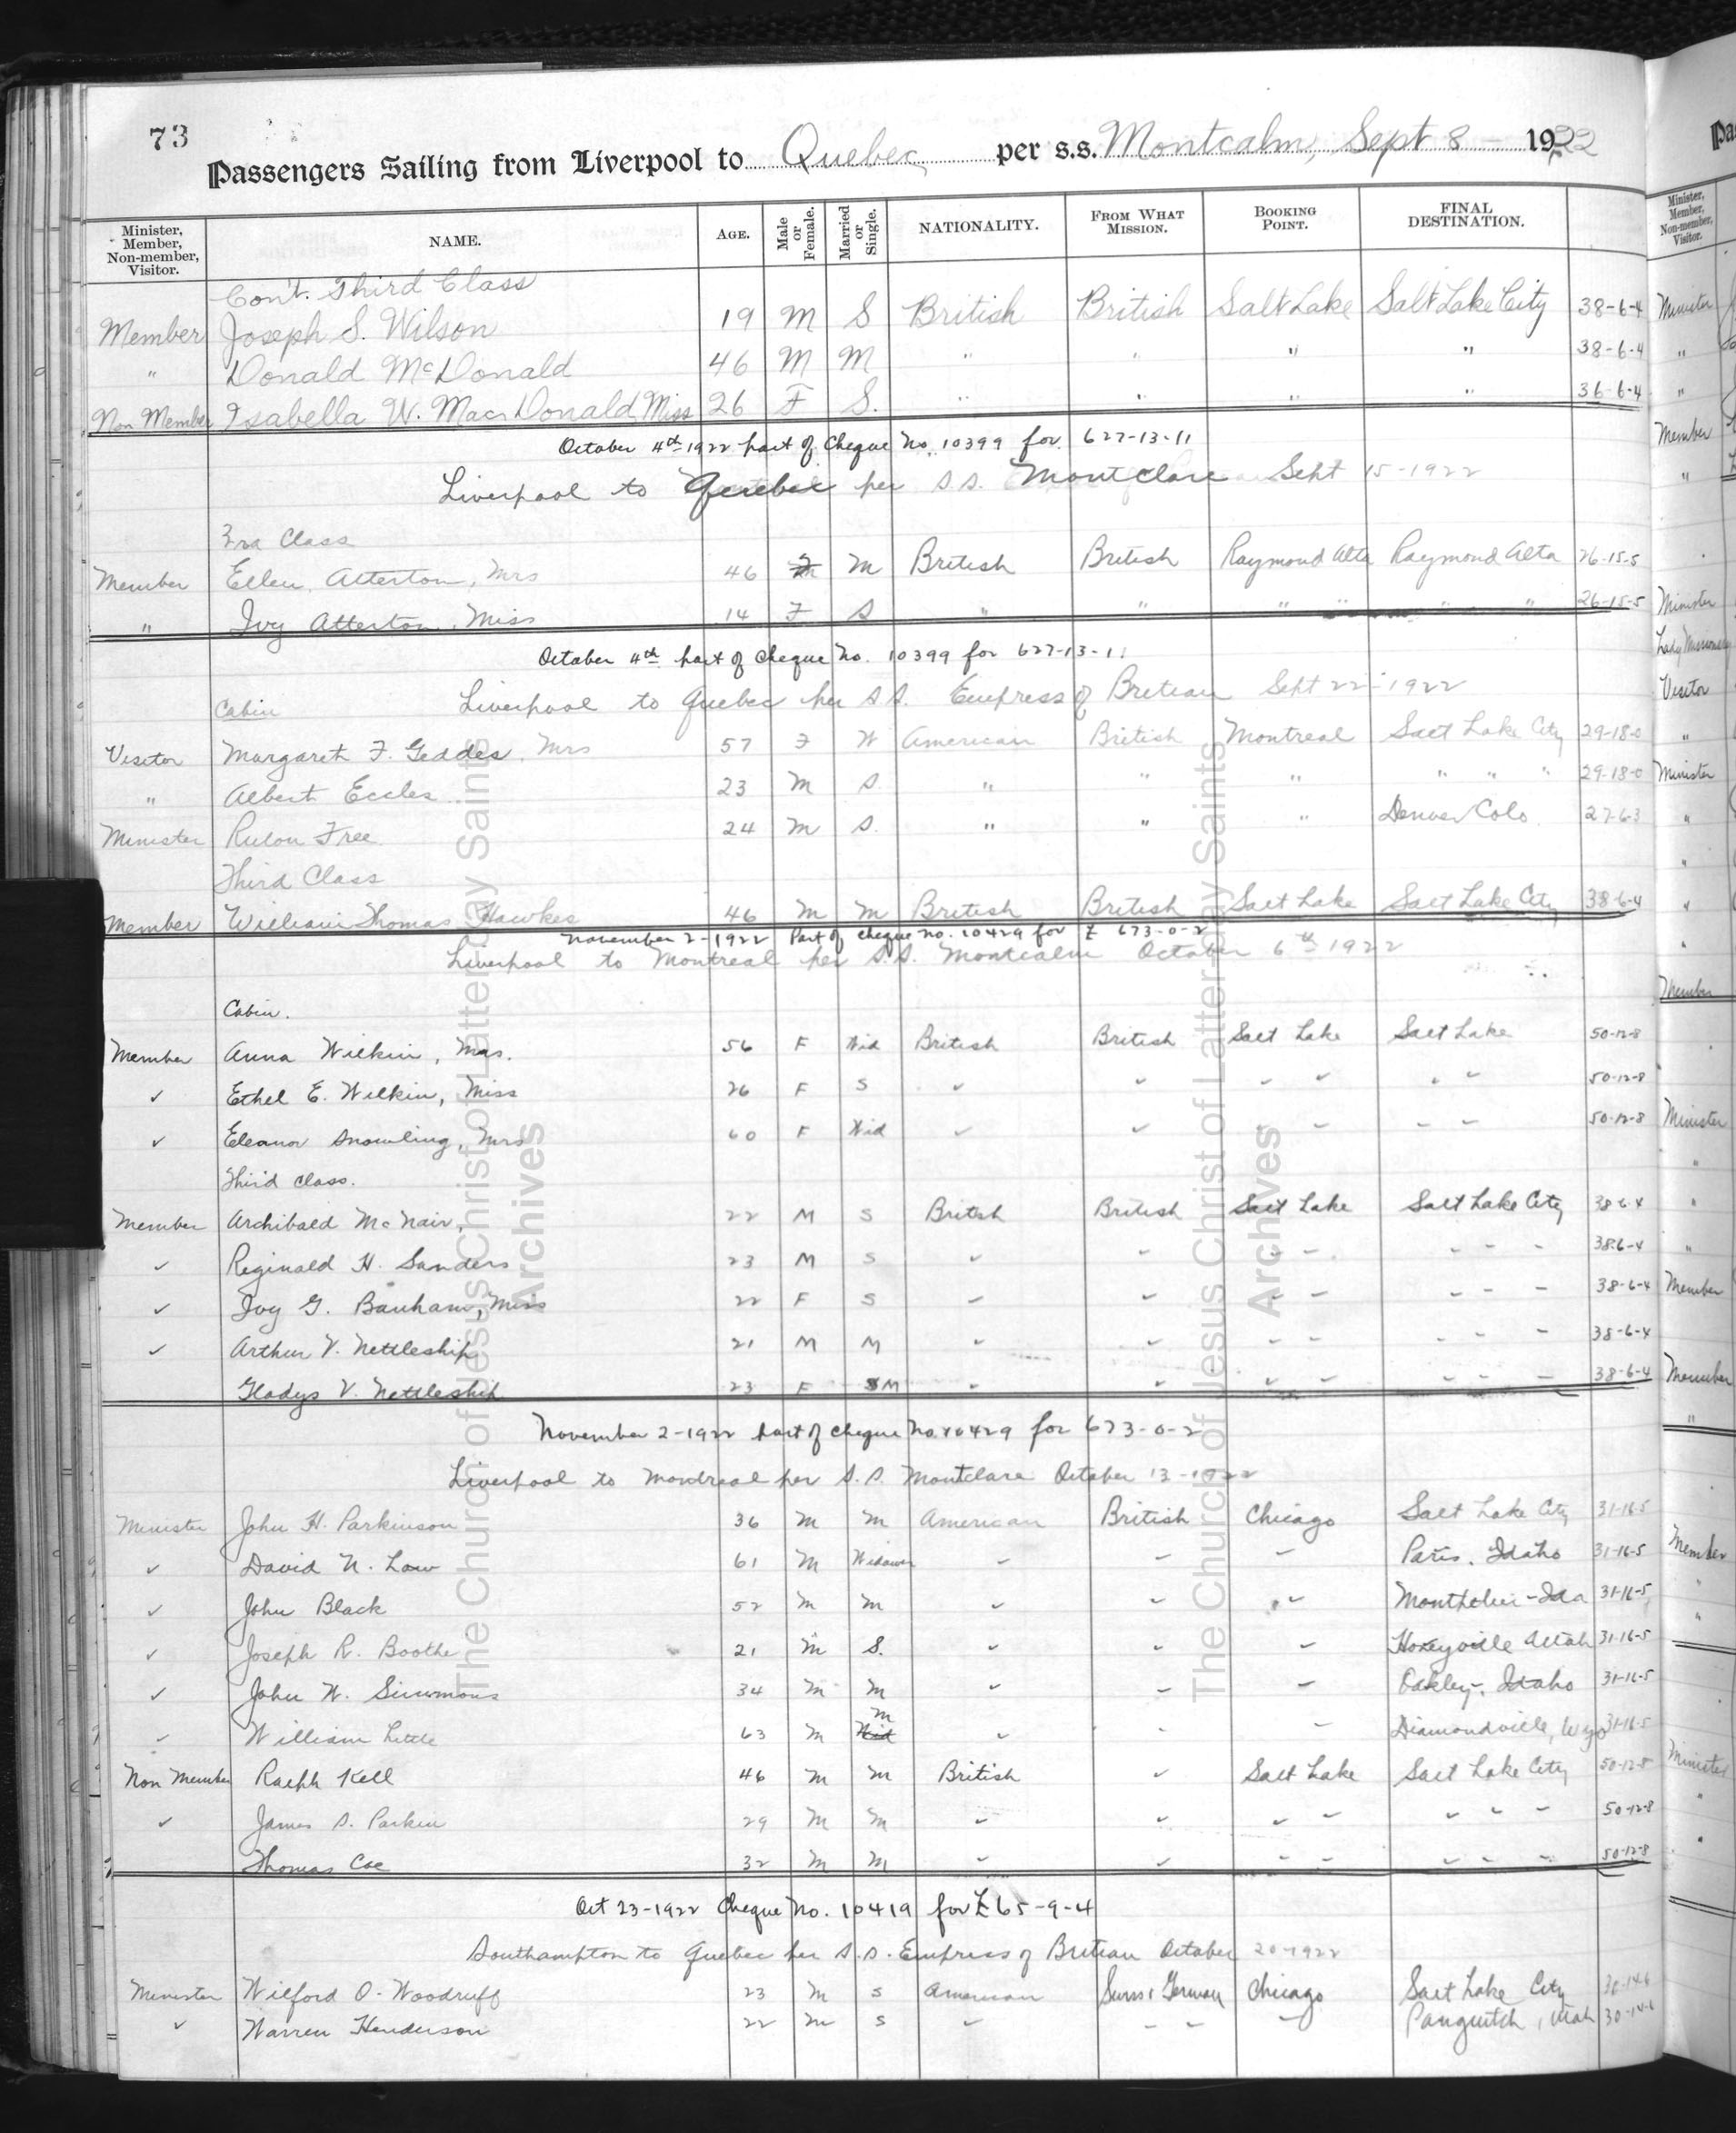 73
Passengers Sailing from Liverpool to Quebec per s.s. Montcalm, Sept 8 - 1922
Minister, Member, Non-member, Visitor. NAME. AGE. Male or Female. Married or Single. NATIONALITY. FROM WHAT MISSION. BOOKING POINT. FINAL DESTINATION.
Cont. Third Class
Member Joseph S. Wilson 19 M S British British Salt Lake Salt Lake City 38-6-4
" Donald McDonald 46 M M " " " " 38-6-4
Non Member Isabella W. MacDonald Miss 26 F S. " " " " 36-6-4
October 4th 1922 part of Cheque No. 10399 for 627-13-11
Liverpool to Quebec per S.S. Montclare Sept 15-1922
3rd Class
Member Ellen Atterton, Mrs 46 F M British British Raymond Alta Raymond Alta 26-15-5
" Ivy Atterton, Miss 14 F S " " " " " " 26-15-5
October 4th part of Cheque No. 10399 for 627-13-11
Liverpool to Quebec per S.S. Empress of Britian Sept 22-1922
Cabin
Visitor Margaret F. Geddes, Mrs 57 F W American British Montreal Salt Lake City 29-18-0
" Albert Eccles 23 M S. " " " " " " 29-18-0
Minister Rulon Free 24 M S. " " " Denver Colo. 27-6-3
Third Class
Member William Thomas Hawkes 46 M M British British Salt Lake Salt Lake City 38-6-4
November 2-1922 Part of Cheque No. 10429 for £ 673-0-2
Liverpool to Montreal per S.S. Montcalm October 6th 1922
Cabin.
Member Anna Wilkin, Mrs. 56 F Wid British British Salt Lake Salt Lake 50-12-8
✓ Ethel E. Wilkin, Miss 26 F S ✓ ✓ ✓ ✓ ✓ ✓ 50-12-8
✓ Eleanor Snowling, Mrs 60 F Wid ✓ ✓ - - - - 50-12-8
Third Class.
Member Archibald McNair, 22 M S British British Salt Lake Salt Lake City 38-6-4
✓ Reginald H. Sanders 23 M S ✓ - - - - - - 38-6-4
✓ Ivy G. Banham, Miss 22 F S ✓ ✓ - - - - - 38-6-4
✓ Arthur V. Nettleship 21 M M ✓ ✓ - - - - - 38-6-4
Gladys V. Nettleship 23 F S M ✓ ✓ - - - - - 38-6-4
November 2-1922 part of Cheque No. 10429 for 673-0-2
Liverpool to Montreal per S.S. Montclare October 13-1922
Minister John H. Parkinson 36 M M American British Chicago Salt Lake City 31-16-5
✓ David N. Low 61 M Widower - - - Paris, Idaho 31-16-5
✓ John Black 52 M M ✓ ✓ ✓ Montpelier - Ida 31-16-5
✓ Joseph R. Boothe 21 M S. ✓ ✓ - Honeyville Utah 31-16-5
✓ John W. Simmons 34 M M ✓ - - Oakley, Idaho 31-16-5
✓ William Little 63 M Wid M ✓ - - Diamondville, Wyo 31-16-5
Non Member Ralph Kell 46 M M British ✓ Salt Lake Salt Lake City 50-12-8
✓ James S. Parkin 29 M M ✓ ✓ ✓ ✓ ✓ ✓ - 50-12-8
Thomas Coe 32 M M ✓ ✓ - - - - - 50-12-8
Oct 23-1922 Cheque No. 10419 for £65-9-4
Southampton to Quebec per S.S. Empress of Britian October 20-1922
Minister Wilford O. Woodruff 23 M S American Swiss & German Chicago Salt Lake City 30-14-6
✓ Warren Henderson 22 M S ✓ - - - Panguitch, Utah 30-14-6
The Church of Jesus Christ of Latter-day Saints
Archives
The Church of Jesus Christ of Latter-day Saints
Archives
Pa
Minister, Member, Non-member, Visitor.
Minister
"
"
Member
"
Minister
Lady Missionary
Visitor
"
Minister
"
"
"
"
Member
Minister
"
"
"
Member
Member
"
Member
"
"
Minister
"
"